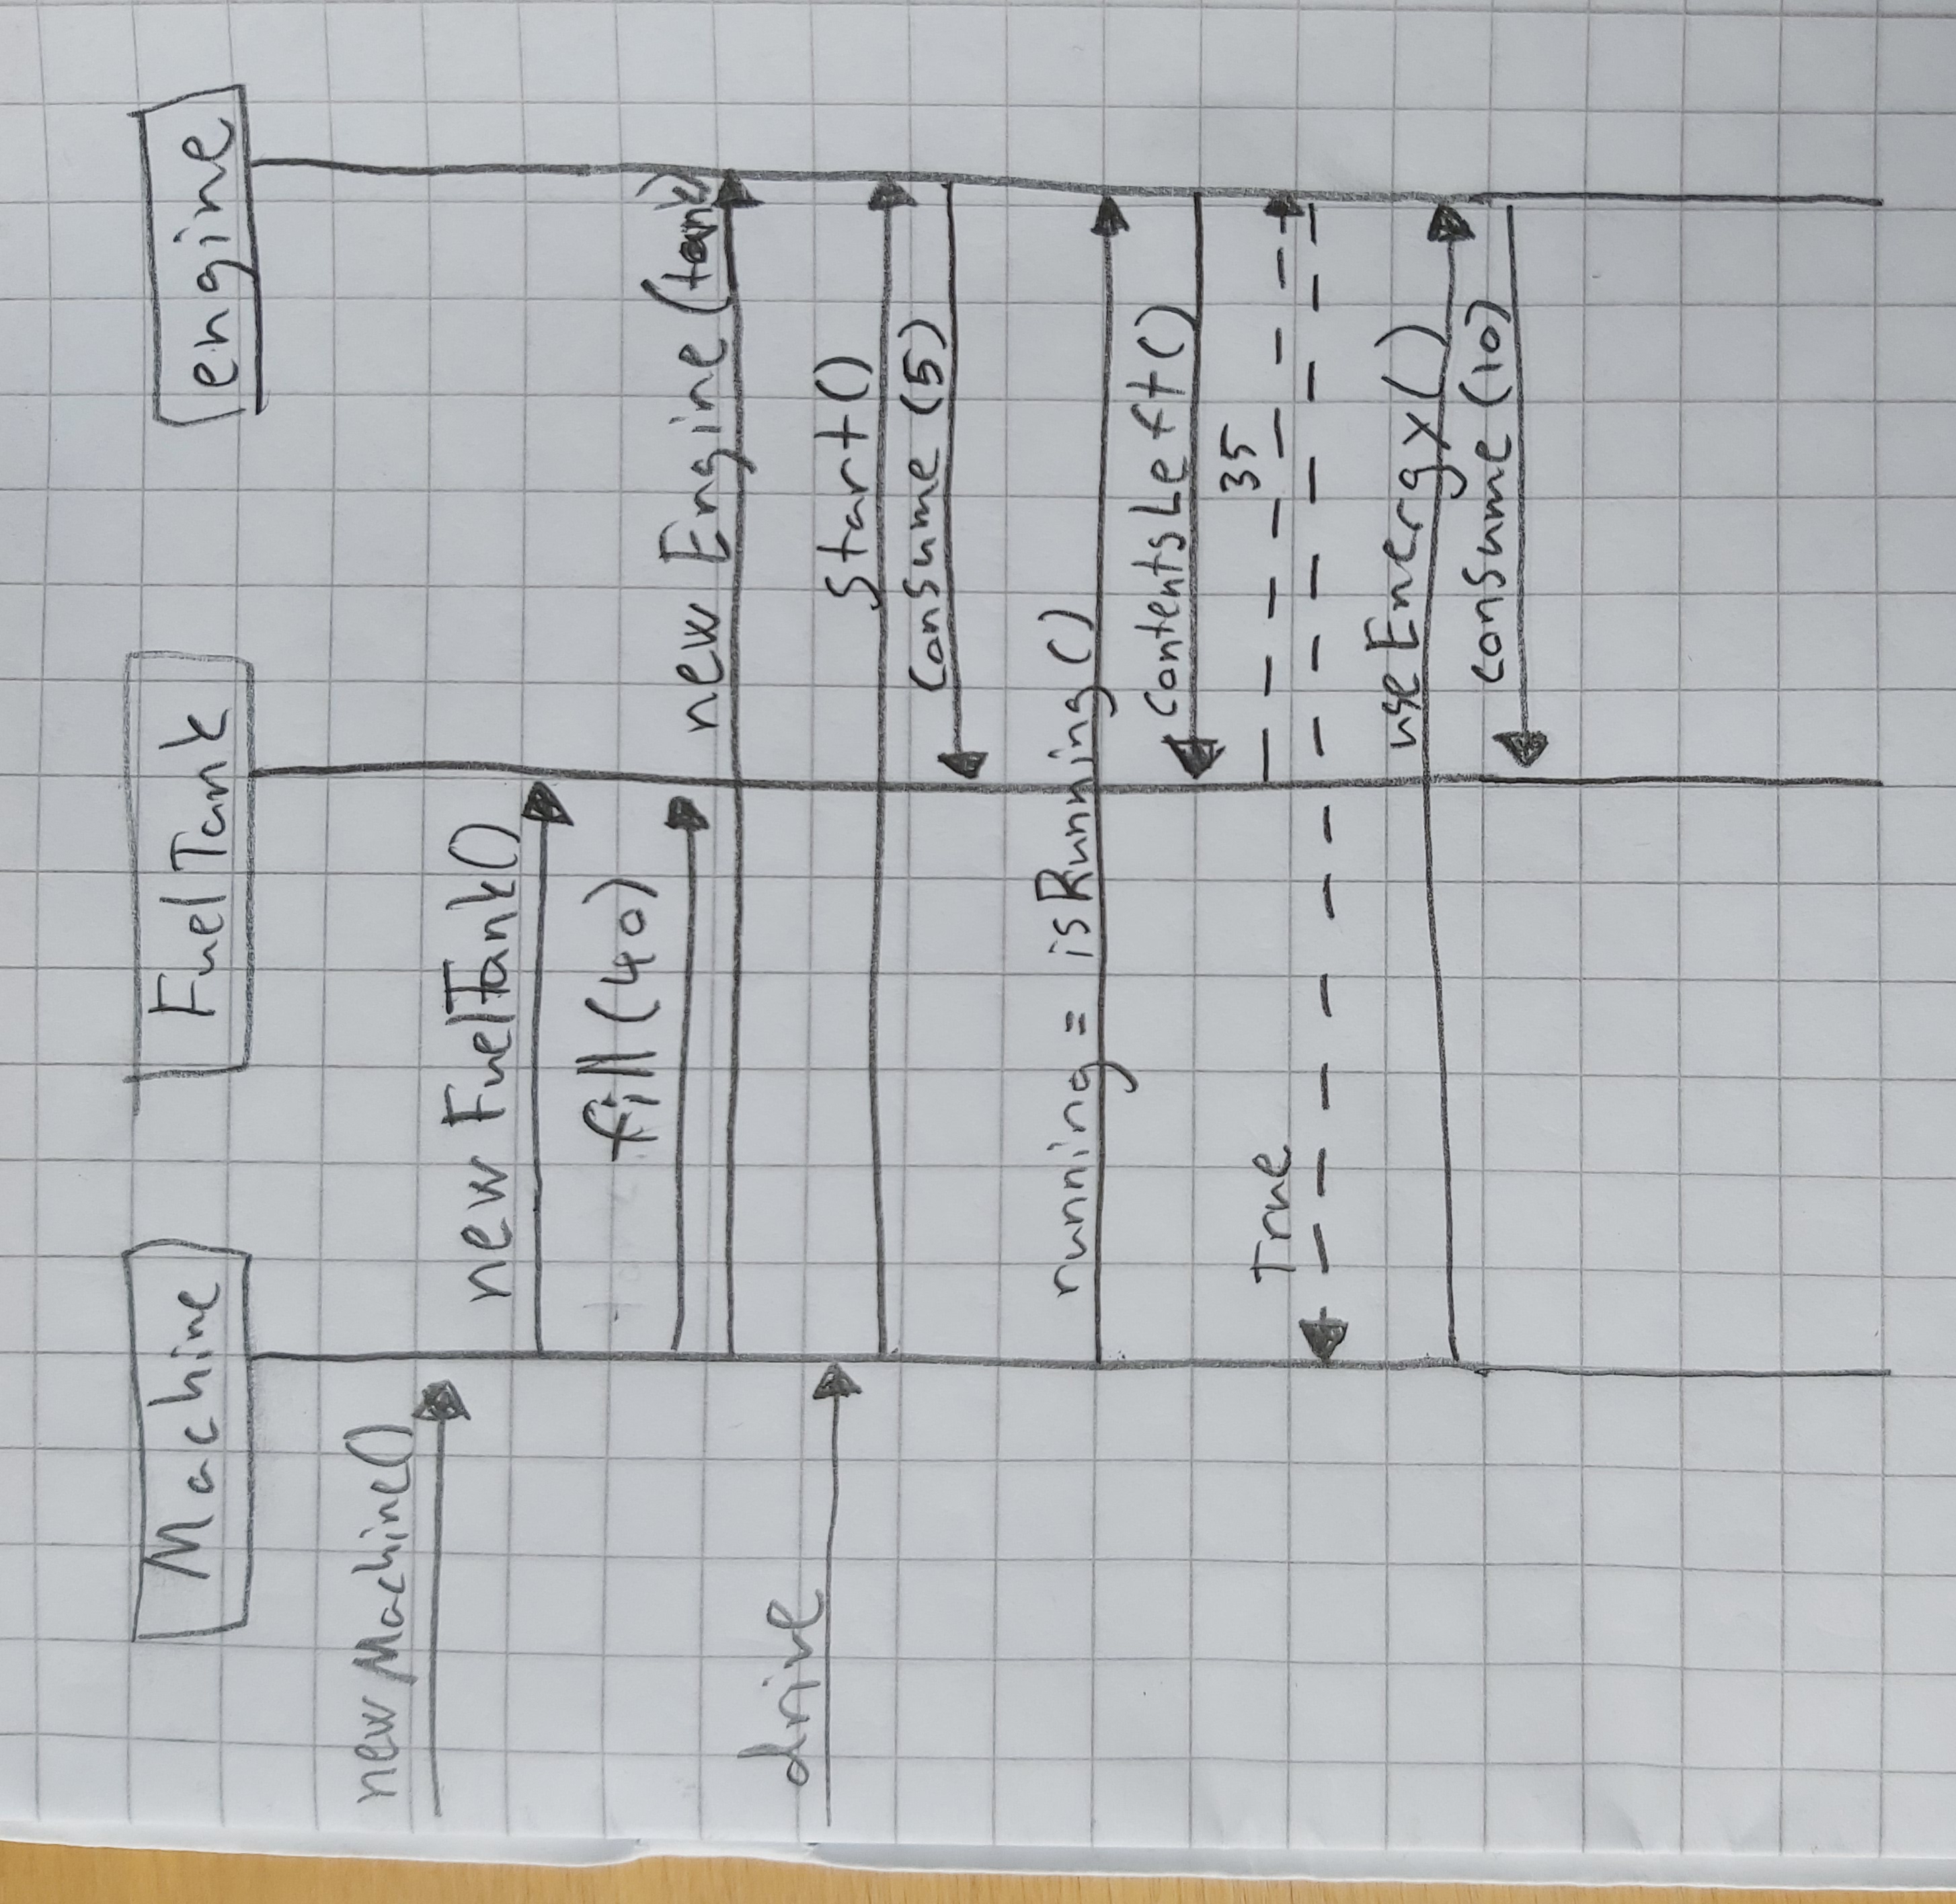 Machine
FuelTank
engine
new Machine()
new FuelTank()
fill(40)
new Engine(tank)
drive
start()
consume (5)
running = isRunning()
contentsLeft()
35
True
useEnergy()
consume (10)